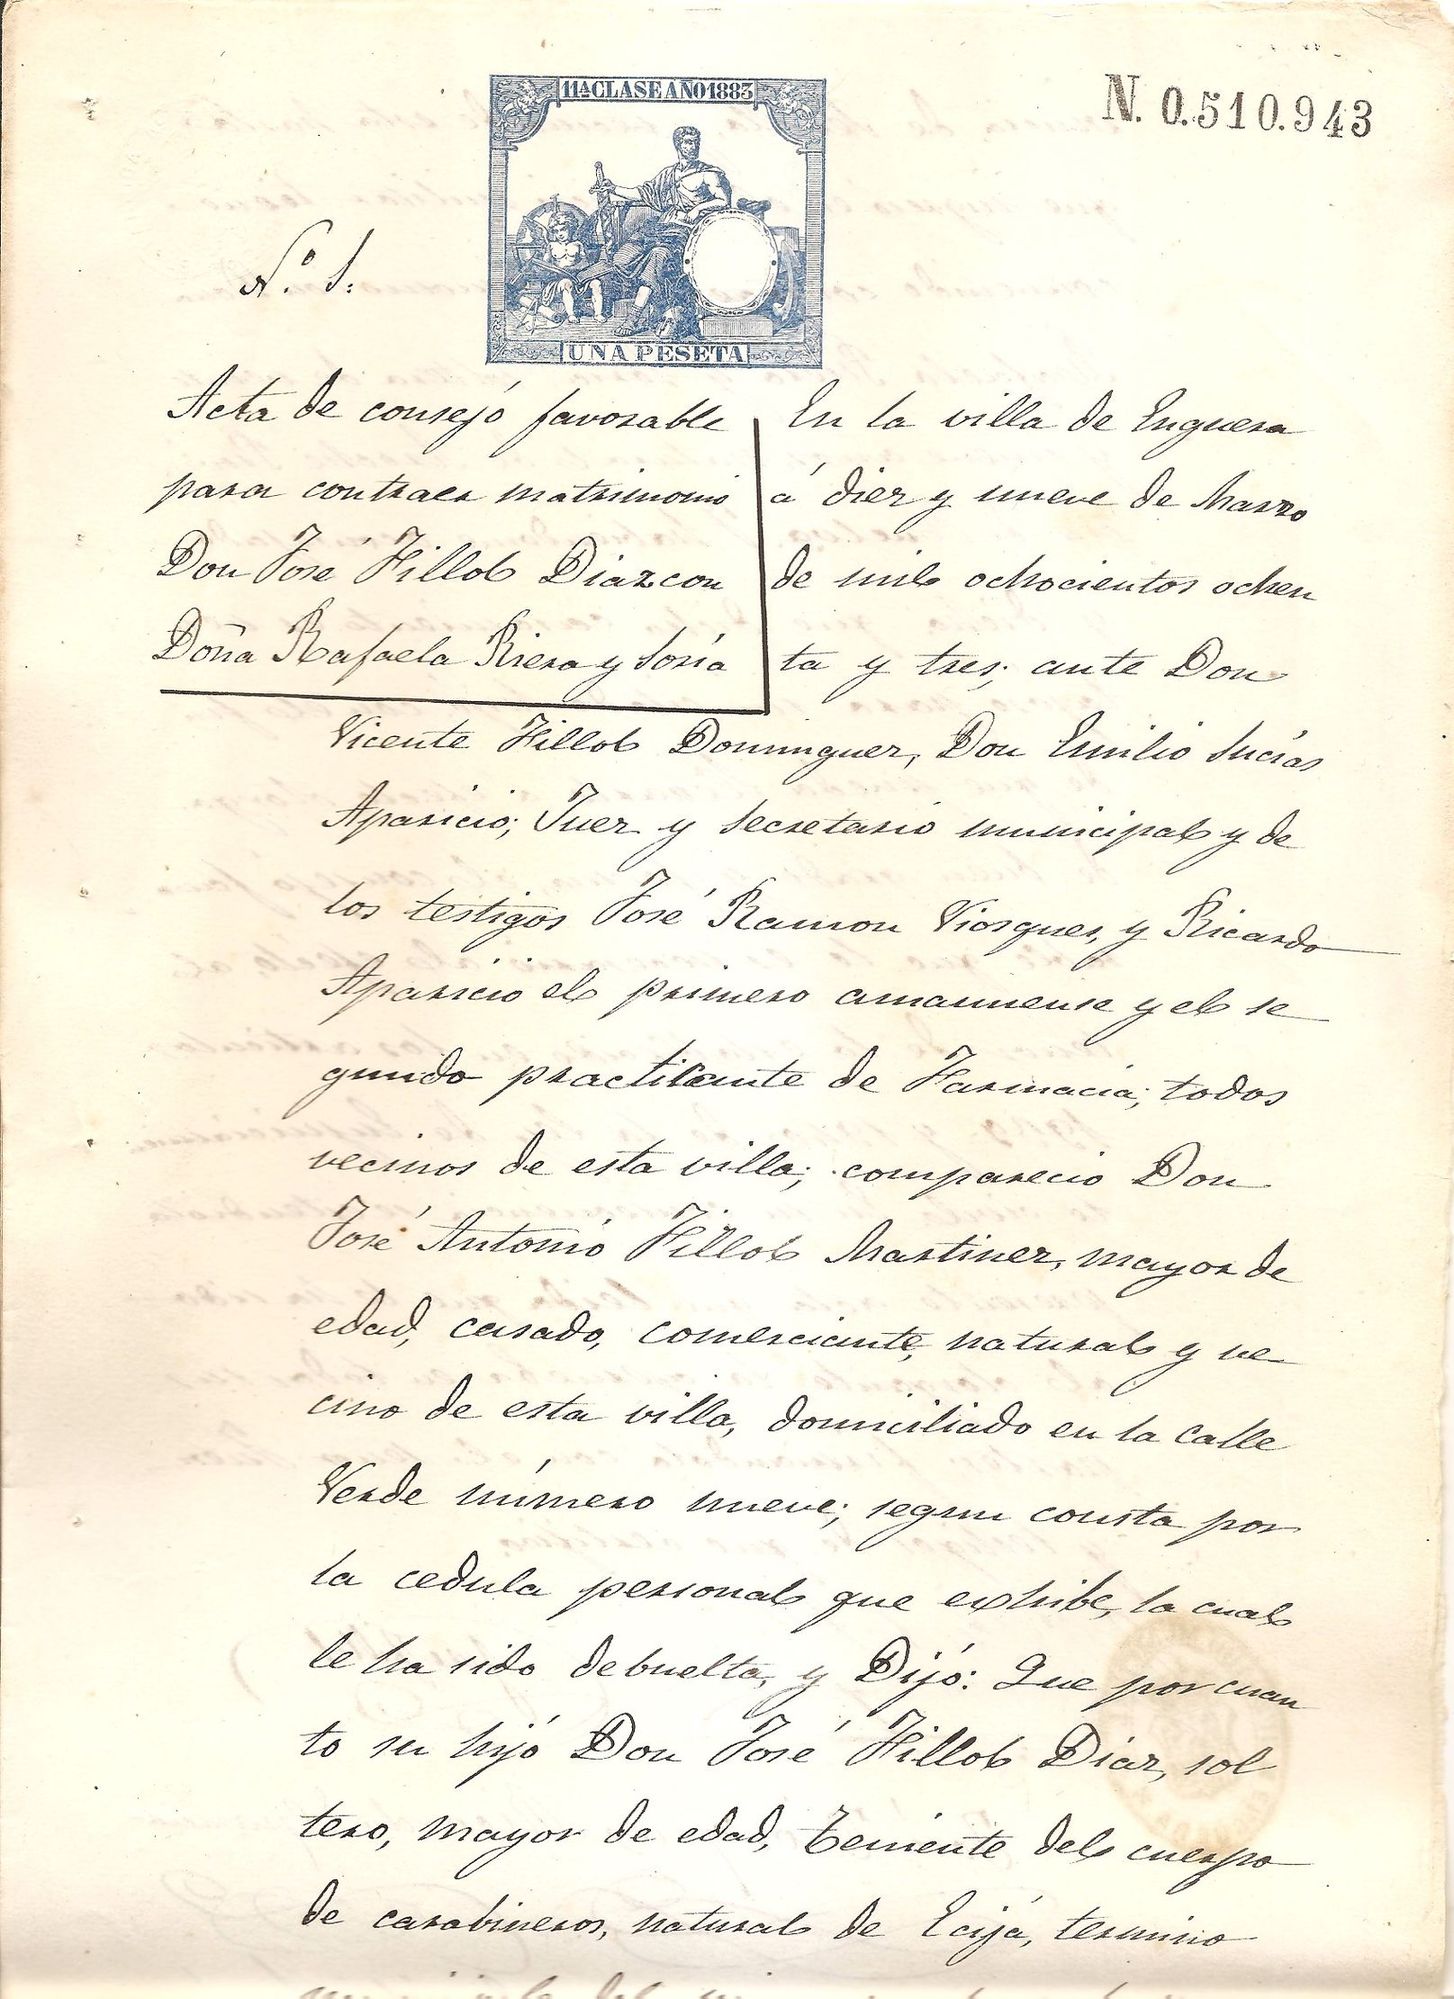 11ª CLASE AÑO 1883
N. 0.510.943
Nº 1:
UNA PESETA
Acta de consejó favorable
para contraer matrimonio
Don José Fillol Diaz con
Doña Rafaela Riera y Soría
En la villa de Enguera
á diez y nueve de Marzo
de mil ochocientos ochen
ta y tres; ante Don
Vicente Fillol Dominguez, Don Emilio Sucías
Aparicio; Juez y secretario municipal y de
los testigos José Ramon Viosques, y Ricardo
Aparicio el primero amanuense y el se
gundo practicante de Farmacia; todos
vecinos de esta villa; comparecio Don
José Antonio Fillol Martinez, mayor de
edad, casado, comerciante, natural y ve
cino de esta villa, domiciliado en la calle
Verde número nueve; segun consta por
la cedula personal que exhibe, la cual
le ha sido debuelta, y Dijó: Que por cuan
to su hijó Don José Fillol Diaz, sol
tero, mayor de edad, Teniente del cuerpo
de carabineros, natural de Ecijá, termino